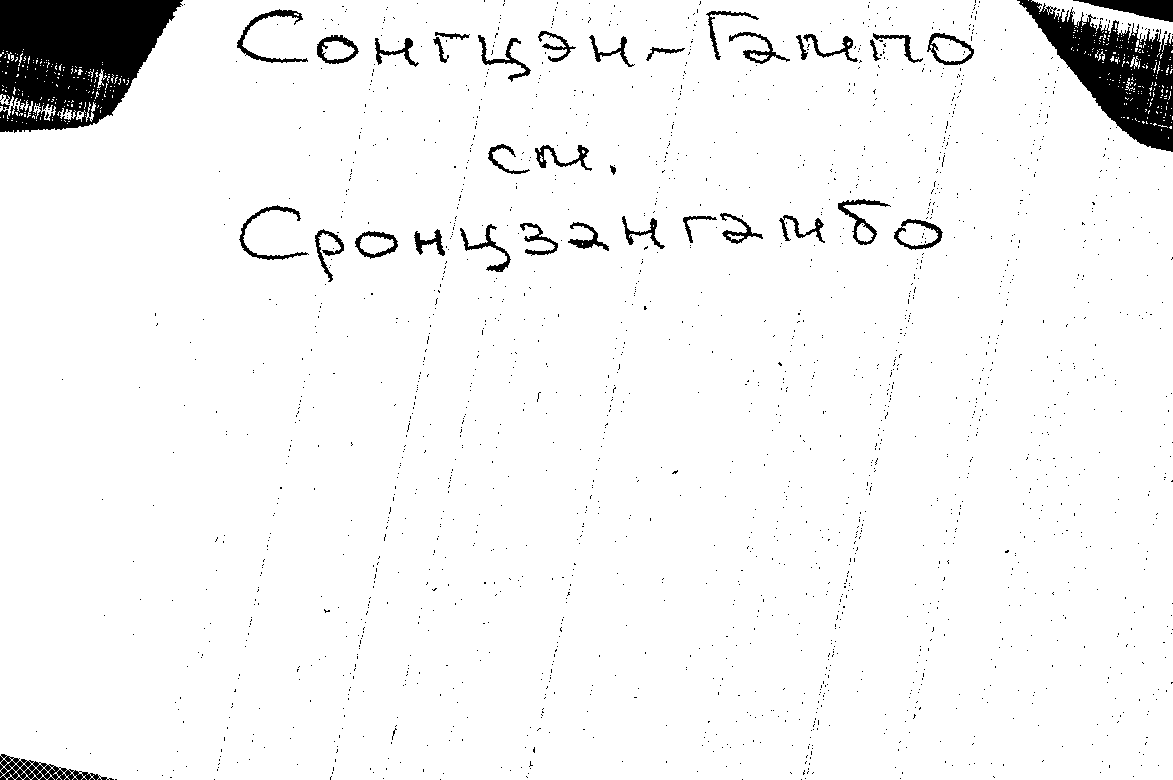 Сонгцэн-Гампо
см.
Сронцзангамбо